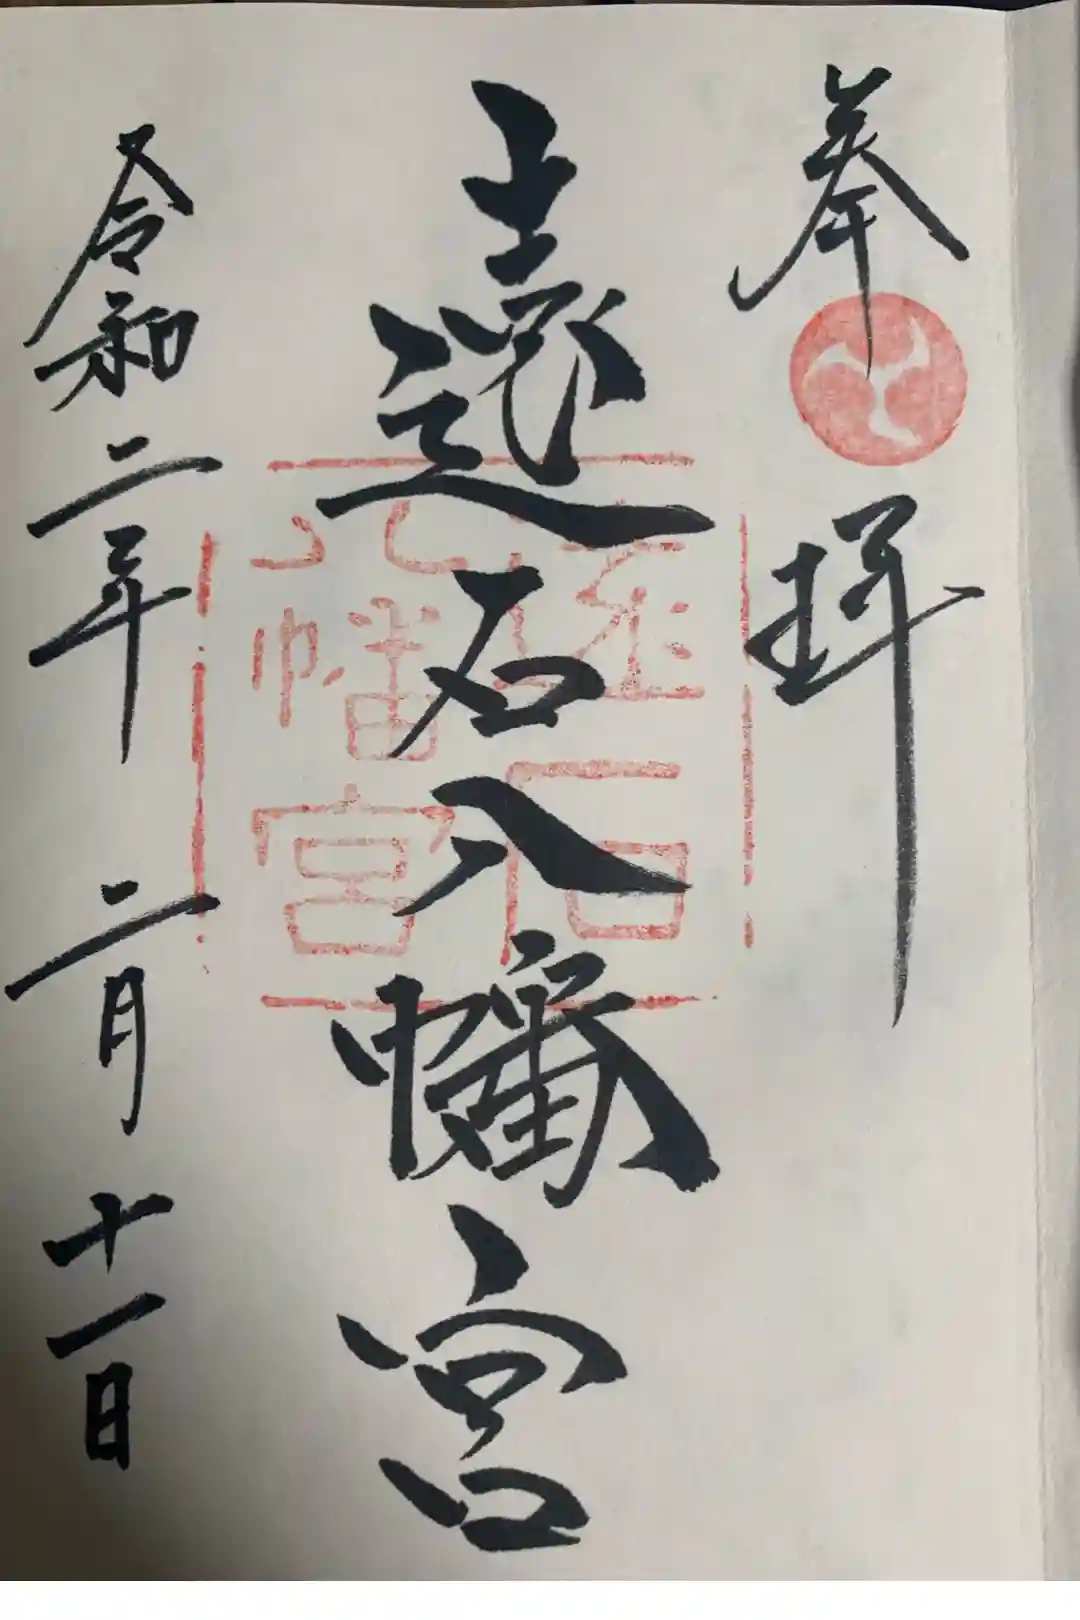 奉拝
遠石八幡宮
遠石八幡宮
令和二年二月十一日